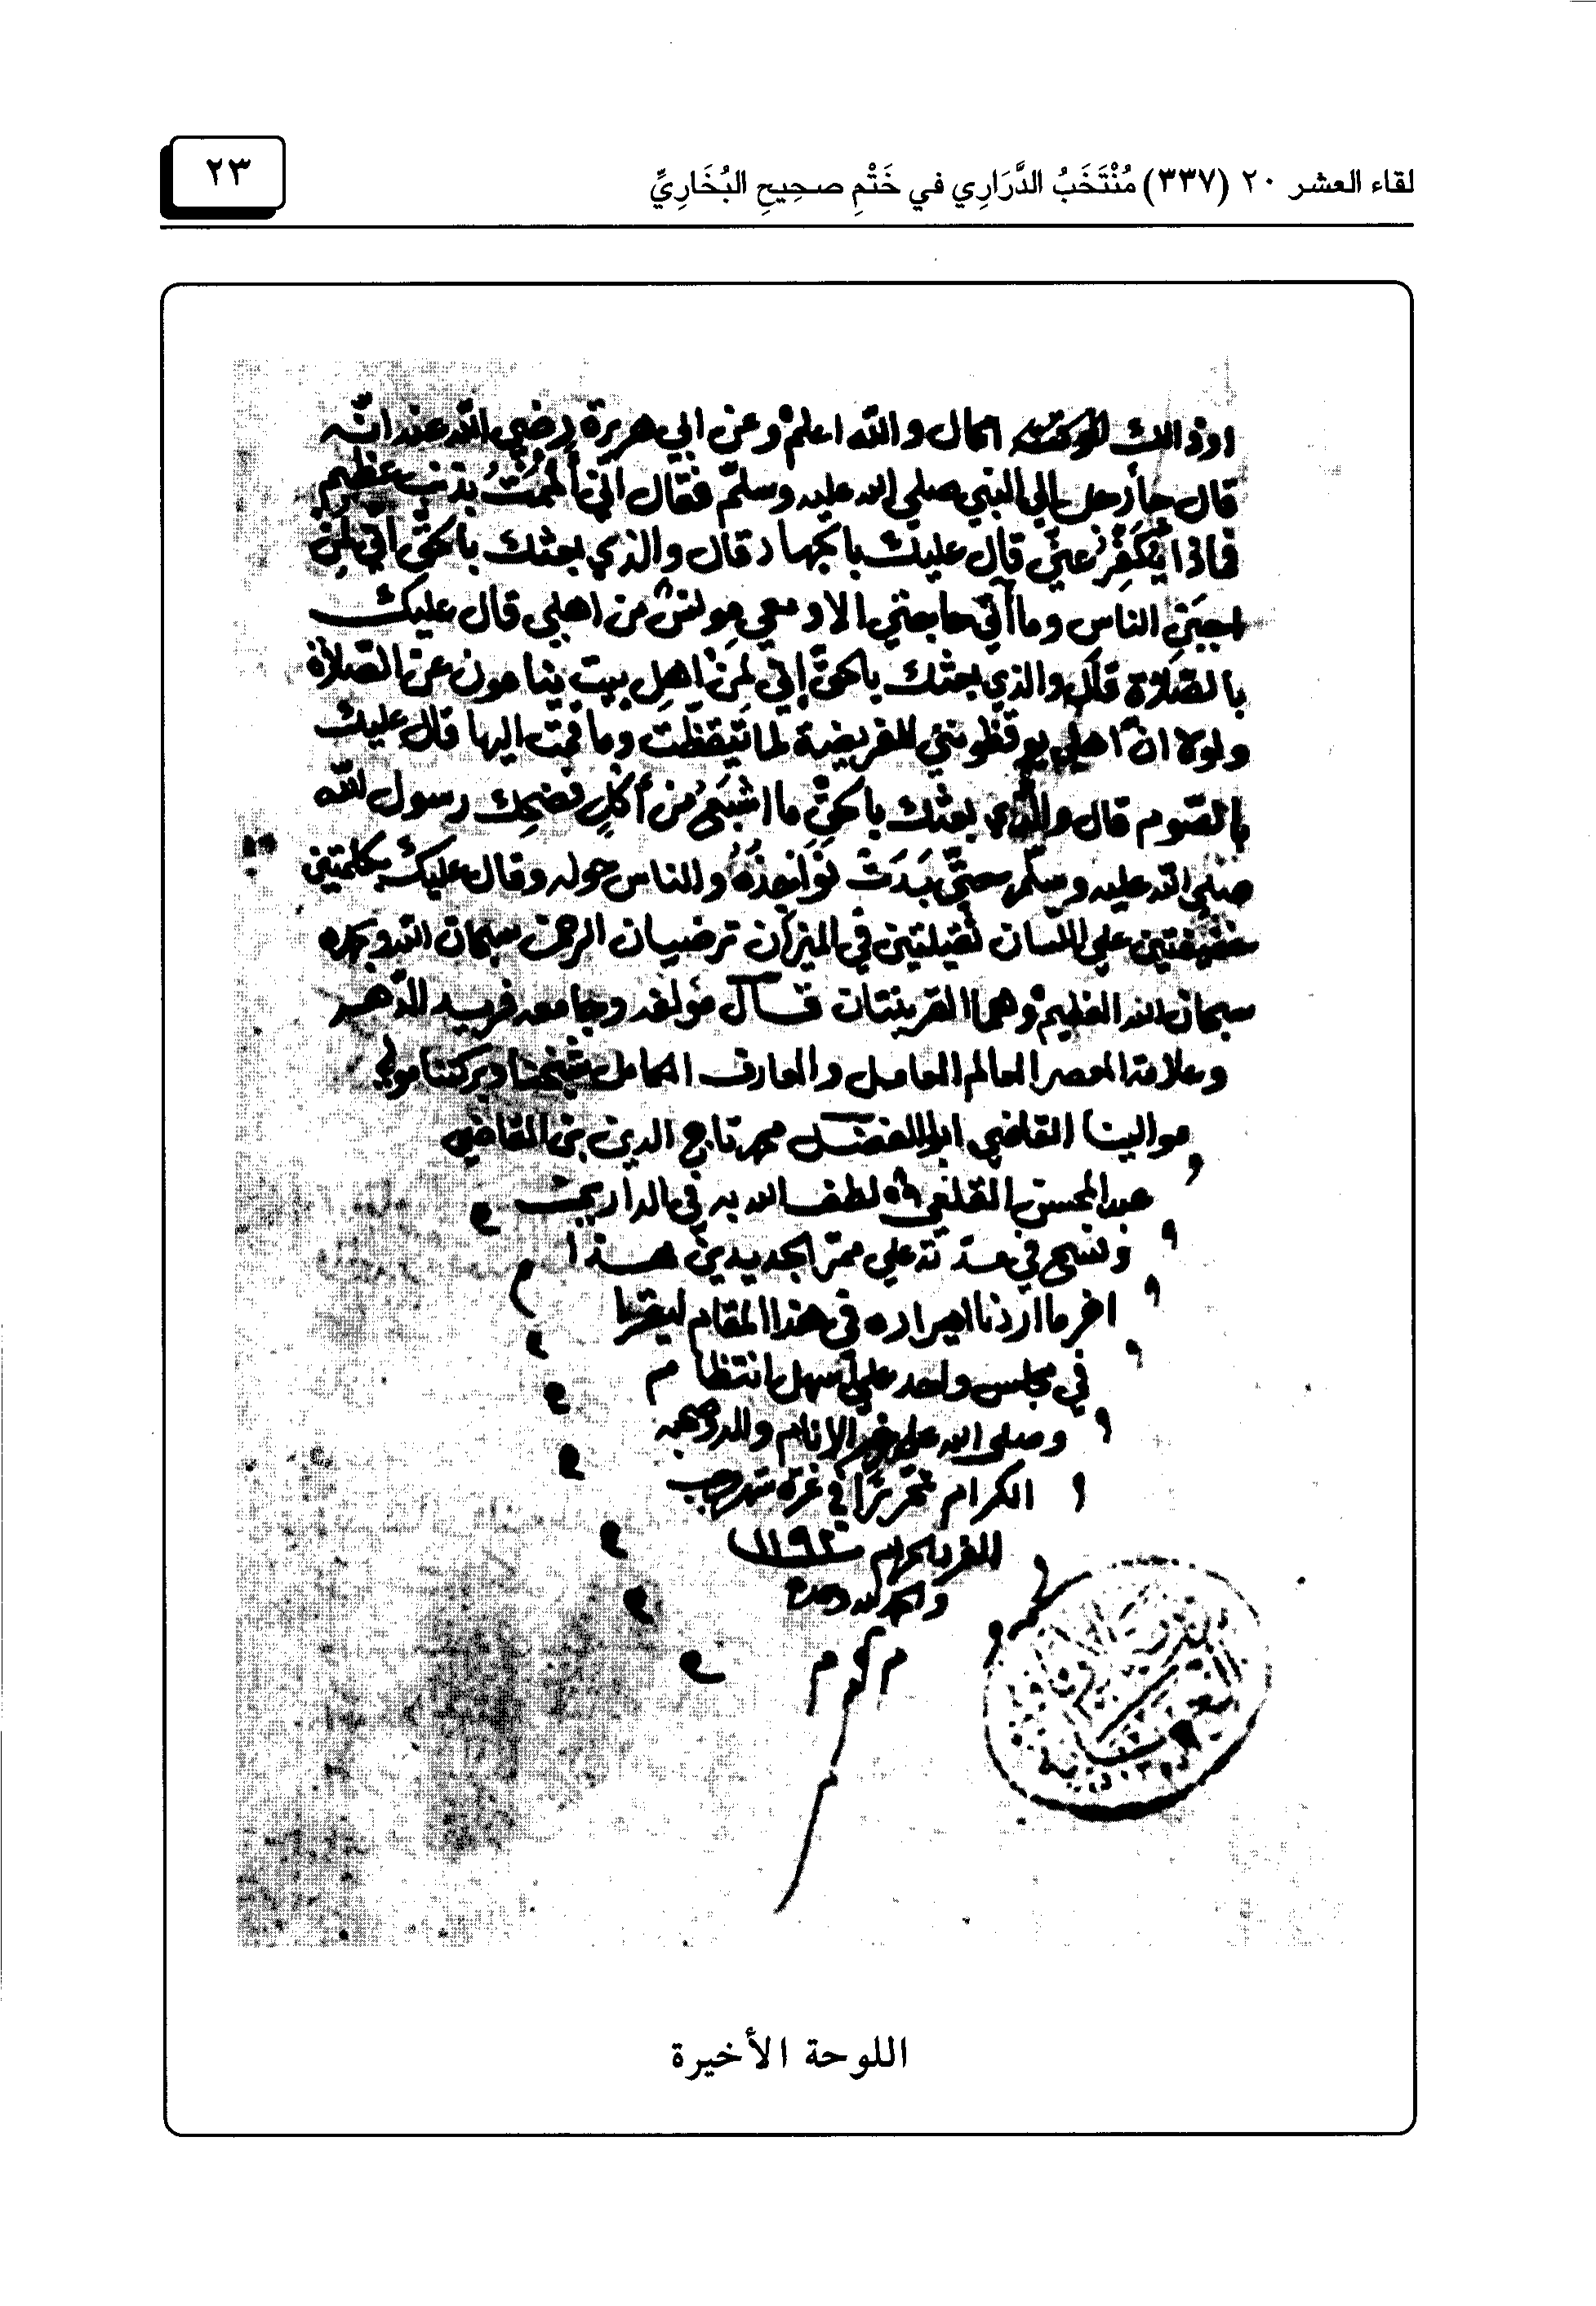 لقاء العشر ٢٠ (٣٣٧) مُنْتَخَبُ الدَّرَارِي في خَتْمِ صحِيحِ البُخَارِيِّ
٢٣
اوذالك الحال والله اعلم وعن ابي هريرة رضي الله عنه انّه
قال جأ رجل إلي النبي صلي الله عليه وسلّم فقال انّي ألممْتُ بذنب عظيم
فماذا يُكَفِّرُ عني قال عليك بالجهاد قال والذي بعثك بالحقّ انّي لمن
اجبَنِ الناس وما آتي حاجتي الا ومعي مونس من اهلي قال عليك
بالصّلاة قال والذي بعثك بالحقّ إنّي لَمِنْ اهلِ بيت ينامون عن الصّلاة
ولولا انّ اهلي يوقظونني للفريضة لما تيقظّت وما قمت اليها قال عليك
بالصّوم قال والّذي بعثك بالحقّ ما اشبَعُ من أكْلٍ فضحِك رسول الله
صلي الله عليه وسلّم حتّي بَدَتْ نَوَاجذُهُ والناس حوله وقال عليك بكلمتين
خفيفتين علي اللّسان ثقيلتين في الميزان ترضيان الرحمن سبحان الله وبحمده
سبحان الله العظيم وهما القرينتان قال مؤلفه وجامعه فريد الدّهر
وعلامة العصر العالم العامل والعارف الكامل شيخنا وبركتنا مولي
موالينا القاضي ابو الفضل محمد تاج الدين بن القاضي
عبد المحسن القلعي لطف الله به في الدارين
وفسح في مدّته علي ممرّ الجديدين هذا
اخر ما اردنا ايراده في هذا المقام ليقرا
في مجلس واحد علي اسهل انتظام
وصلي الله علي خير الانام واله وصحبه
الكرام تحريرًا في غرة شهر رجب
الفرد الحرام ١١٩٢
والحمد لله وحده
اللوحة الأخيرة